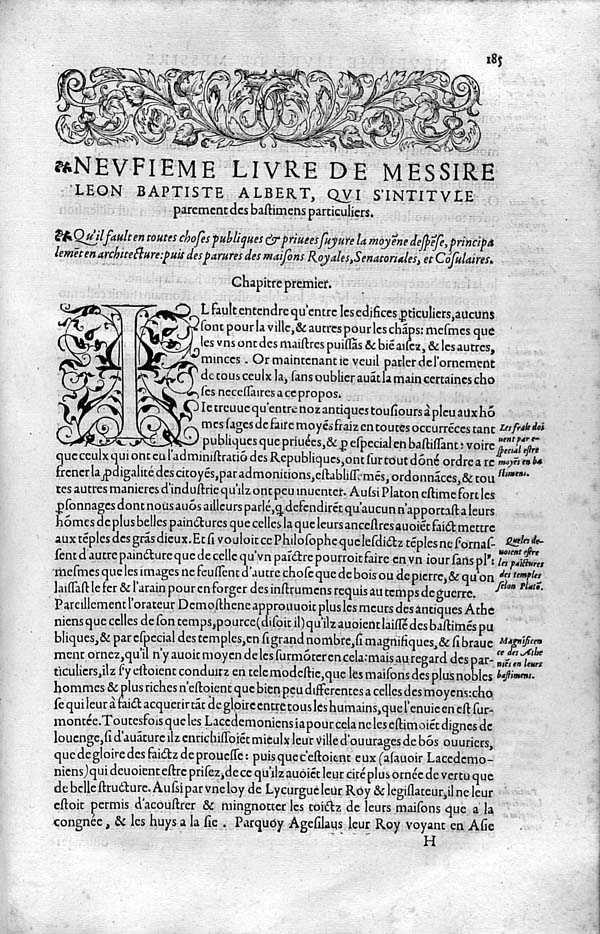 185
NEVFIEME LIVRE DE MESSIRE
LEON BAPTISTE ALBERT, QVI S'INTITVLE
parement des bastimens particuliers.
Qu'il fault en toutes choses publiques & priuees suyure la moyẽne despẽse, principa
lemẽt en architecture: puis des parures des maisons Royales, Senatoriales, et Cõsulaires.
Chapitre premier.
IL fault entendre qu'entre les edifices ꝑticuliers, aucuns
sont pour la ville, & autres pour les chãps: mesmes que
les vns ont des maistres puissãs & biẽ aisez, & les autres,
minces. Or maintenant ie veuil parler de l'ornement
de tous ceulx la, sans oublier auãt la main certaines cho
ses necessaires a ce propos.
Ie treuue qu'entre noz antiques tousiours à pleu aux hõ
mes sages de faire moyẽs fraiz en toutes occurrẽces tant
publiques que priuées, & ꝑ especial en bastissant: voire
que ceulx qui ont eu l'administratiõ des Republiques, ont sur tout dõné ordre a re
frener la ꝓdigalité des citoyẽs, par admonitions, establissemẽs, ordonnãces, & tou
tes autres manieres d'industrie qu'ilz ont peu inuenter. Aussi Platon estime fort les
ꝑsonnages dont nous auõs ailleurs parlé, q̃ defendirẽt qu'aucun n'apportast a leurs
hõmes de plus belles painctures que celles la que leurs ancestres auoiẽt faict mettre
aux tẽples des grãs dieux. Et si vouloit ce Philosophe que lesdictz tẽples ne fornas-
sent d'autre paincture que de celle qu'vn paĩctre pourroit faire en vn iour sans pl9:
mesmes que les images ne feussent d'autre chose que de bois ou de pierre, & qu'on
laissast le fer & l'arain pour en forger des instrumens requis au temps de guerre.
Pareillement l'orateur Demosthene approuuoit plus les meurs des antiques Athe
niens que celles de son temps, pource (disoit il) qu'ilz auoient laissé des bastimẽs pu
bliques, & par especial des temples, en si grand nombre, si magnifiques, & si braue
ment ornez, qu'il n'y auoit moyen de les surmõter en cela: mais au regard des par-
ticuliers, ilz s'y estoient conduitz en tele modestie, que les maisons des plus nobles
hommes & plus riches n'estoient que bien peu differentes a celles des moyens: cho
se qui leur à faict acquerir tãt de gloire entre tous les humains, que l'enuie en est sur-
montée. Toutesfois que les Lacedemoniens ia pour cela ne les estimoiẽt dignes de
louenge, si d'auãture ilz enrichissoiẽt mieulx leur ville d'ouurages de bõs ouuriers,
que de gloire des faictz de prouesse: puis que c'estoient eux (asauoir Lacedemo-
niens) qui deuoient estre prisez, de ce qu'ilz auoiẽt leur cité plus ornée de vertu que
de belle structure. Aussi par vne loy de Lycurgue leur Roy & legislateur, il ne leur
estoit permis d'acoustrer & mingnotter les toictz de leurs maisons que a la
congnée, & les huys a la sie. Parquoy Agesilaus leur Roy voyant en Asie
H
Les fraiz doi
uent par e-
special estre
moyẽs en ba
stimens.
Queles de-
uoient estre
les paĩctures
des temples
selon Platõ.
Magnificen
ce des Athe
niẽs en leurs
bastimens.